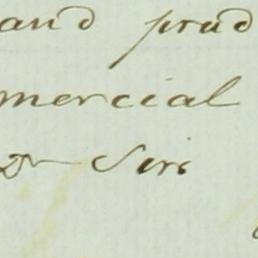 and prud
mercial
Dr Sirs